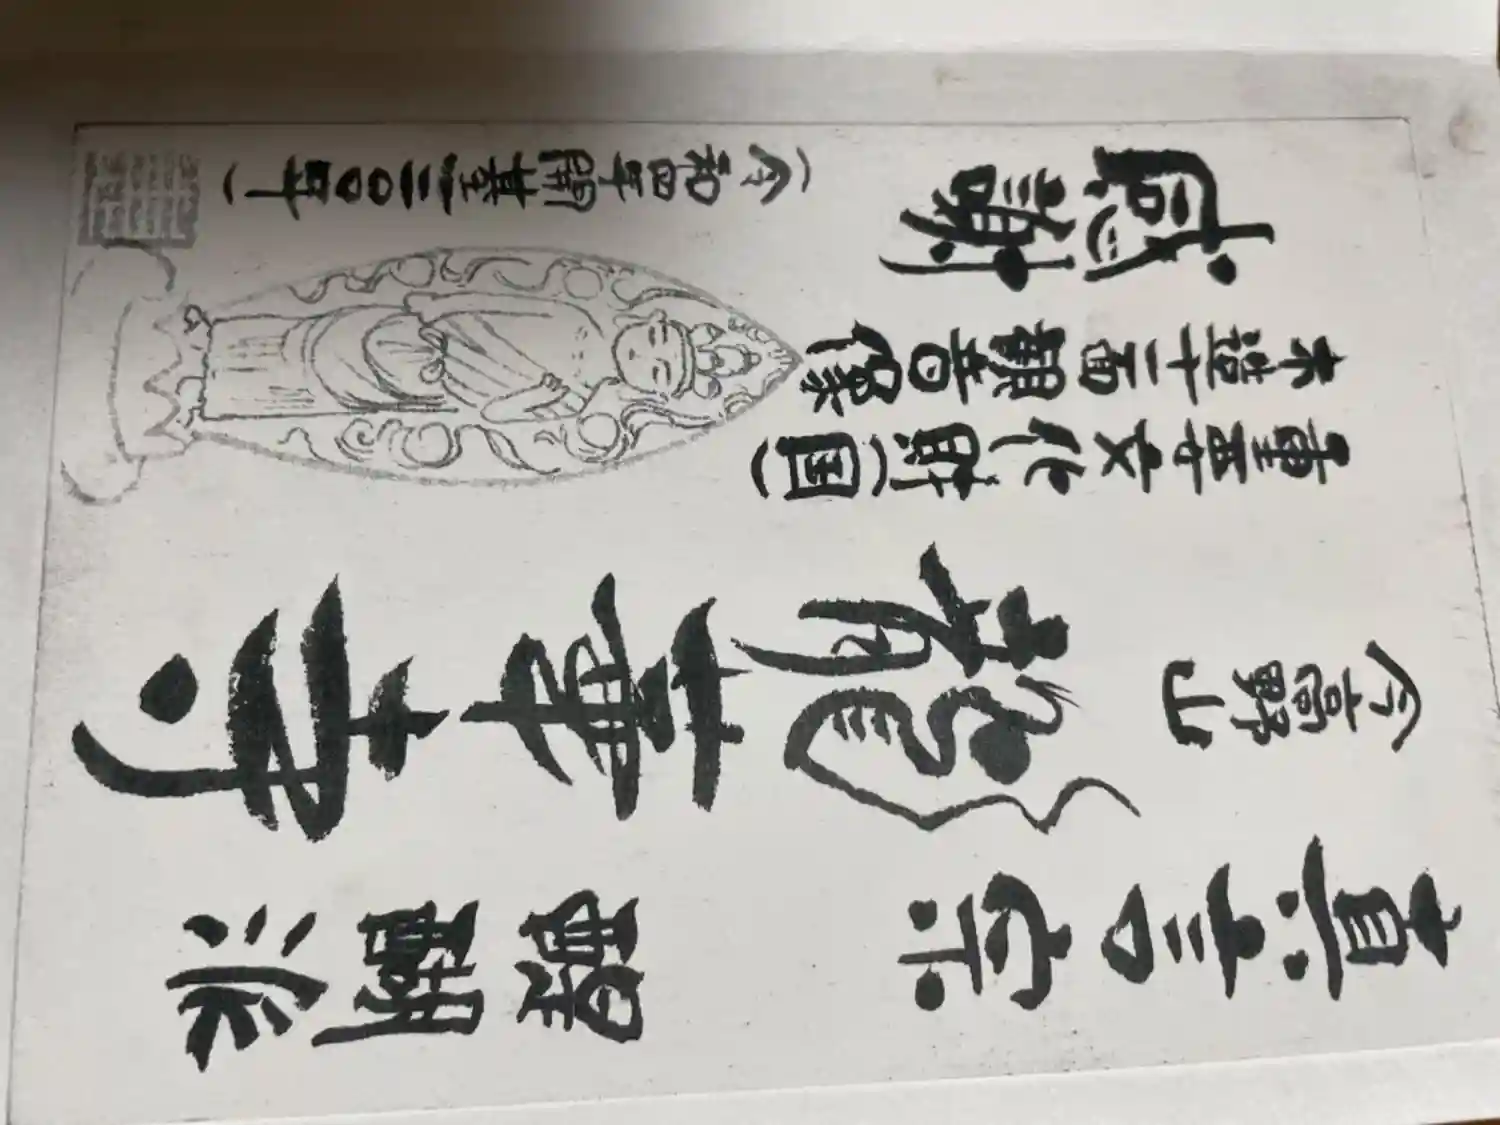 真言宗 派
今高野山
龍華寺
重要文化財(国)
木造十一面観音像
感謝
(令和四年開基一二〇〇年)